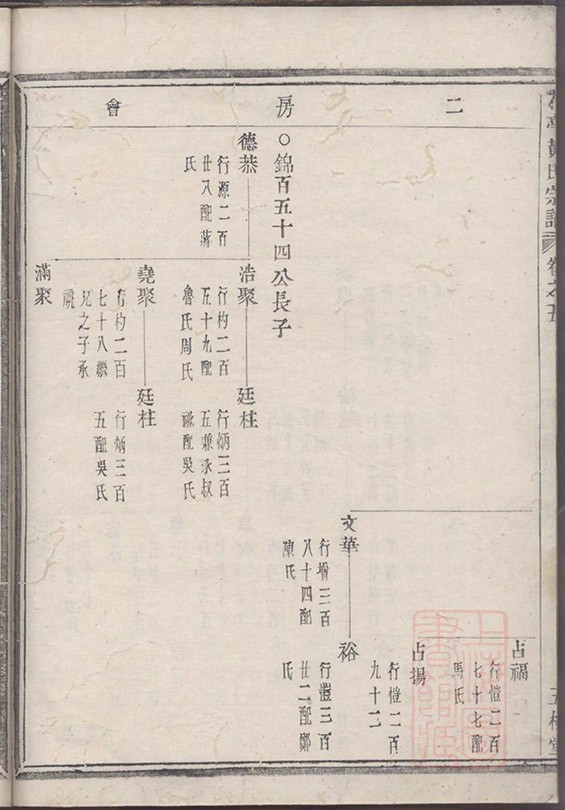 黃氏宗譜
卷之五
二房會
占福
行愷二百
七十七配
馬氏
占揚
行愷二百
九十二
文華
行增三百
八十四配
陳氏
裕
行愷三百
廿二配鄭
氏
○錦百五十四公長子
德恭
行源二百
廿八配蔣
氏
浩聚
行杓二百
五十九配
魯氏周氏
廷柱
行炳三百
五兼承叔
祧配吳氏
堯聚
行杓二百
七十八繼
兄之子承
祧
廷柱
行炳三百
五配吳氏
滿聚